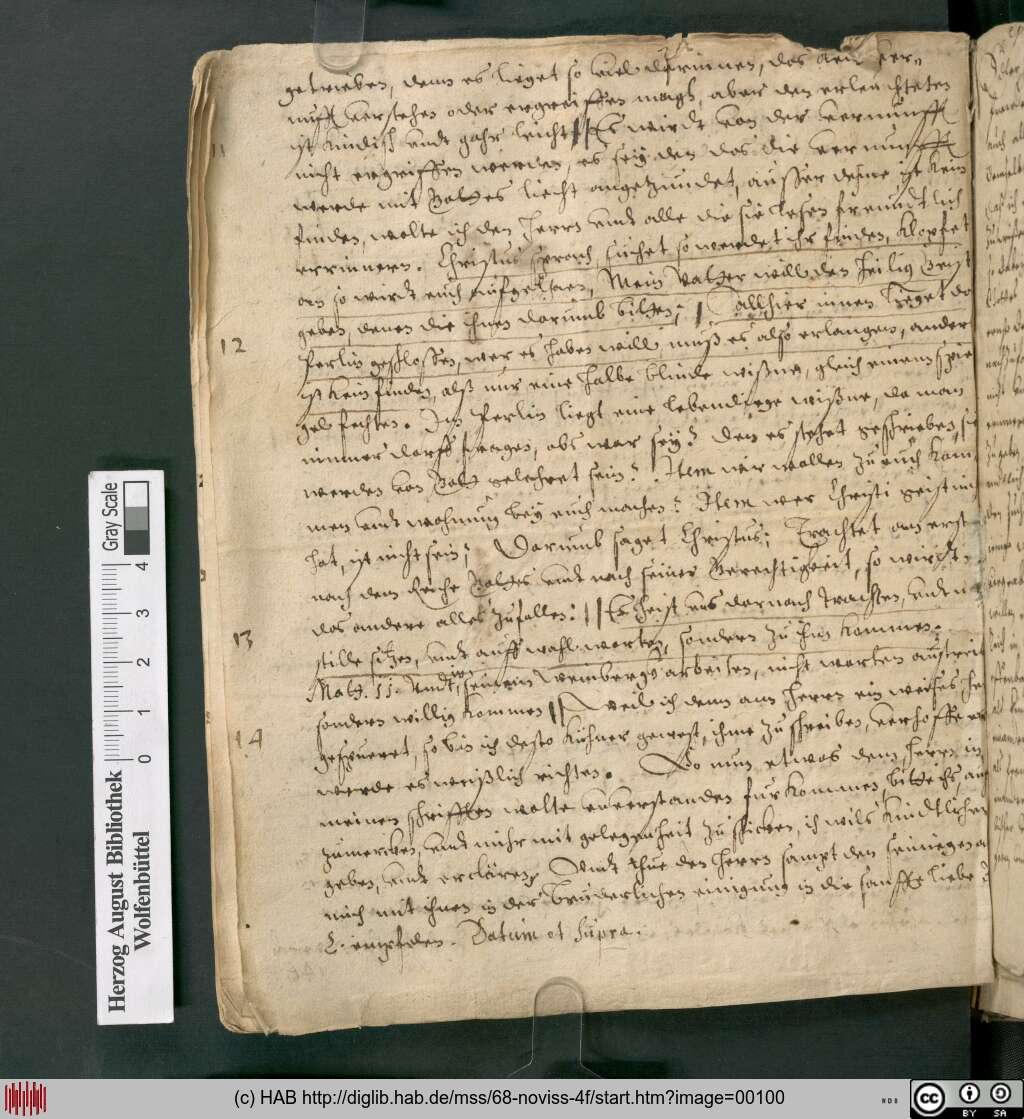 getrieben, denn es lieget so viel darinnen, das kein ver„
nufft verstehen oder ergreiffen magk, aber den erleuchteten
ist kindisch undt gahr leicht || Es wirdt von der vernunfft
11 nicht ergriffen werden, es sey den das die vernunfft
werde mit Gottes liecht angezundet, ausser deme ist kein
finden, wolte ich den Herrn undt alle die sie lesen freundtlich
errinnern. Christus sprach, suchet so werdet ihr finden, klopfet
an so wirdt euch aufgethaen, Mein Vatter will den heilig Geist
geben, denen die ihnen darumb bitten; | allhier innen lieget das
12 Perlin geschlossen, wer es haben will, muß es also erlangen, anders
ist kein finden, alß nur eine halbe blinde wißne, gleich einem spie
gel fechten. Im Perlin liegt eine lebendiege wißne, da man
nimmer darff fragen, obs war sey? Den es stehet geschrieben, sie
werden von Gott gelehret sein? Item wir wollen zu euch kom
men undt wohnung bey euch machen? Item wer Christi geist nit
hat, ist nicht sein; Darumb saget Christus; Trachtet am erst
nach dem Reiche Gottes undt nach seiner Gerechtigkeit, so wirdt
das andere alles zufallen: || Er heist uns darnach trachten, undt nit
13 stille sitzen, undt auff wahl warten, sondern zu ihm kommen.
Math. 11. Undt in seinem weinbergk arbeiten, nicht warten auf treib
sondern willig kommen || weil ich dann am Herrn ein weises hertz
14 gespueret, so bin ich desto kühner gewest, ihme zu schreiben, verhoffe er
werde es weißlich richten. So nun etwas dem Herrn in
meinen schrifften wolte unverstanden furkommen, bitte ichs, anzu
zumercken, undt mihr mit gelegenheit zu schicken, ich wils kindtlicher
geben, undt ercläeren, Undt thue den Herrn sampt den seiniegen a
mich mit ihnen in der brüderlichen einigung in die sanffte liebe J
C. empfelen. Datum et supra.
Herzog August Bibliothek
Wolfenbüttel
0 1 2 3 4
Gray Scale
(c) HAB http://diglib.hab.de/mss/68-noviss-4f/start.htm?image=00100
cc BY SA